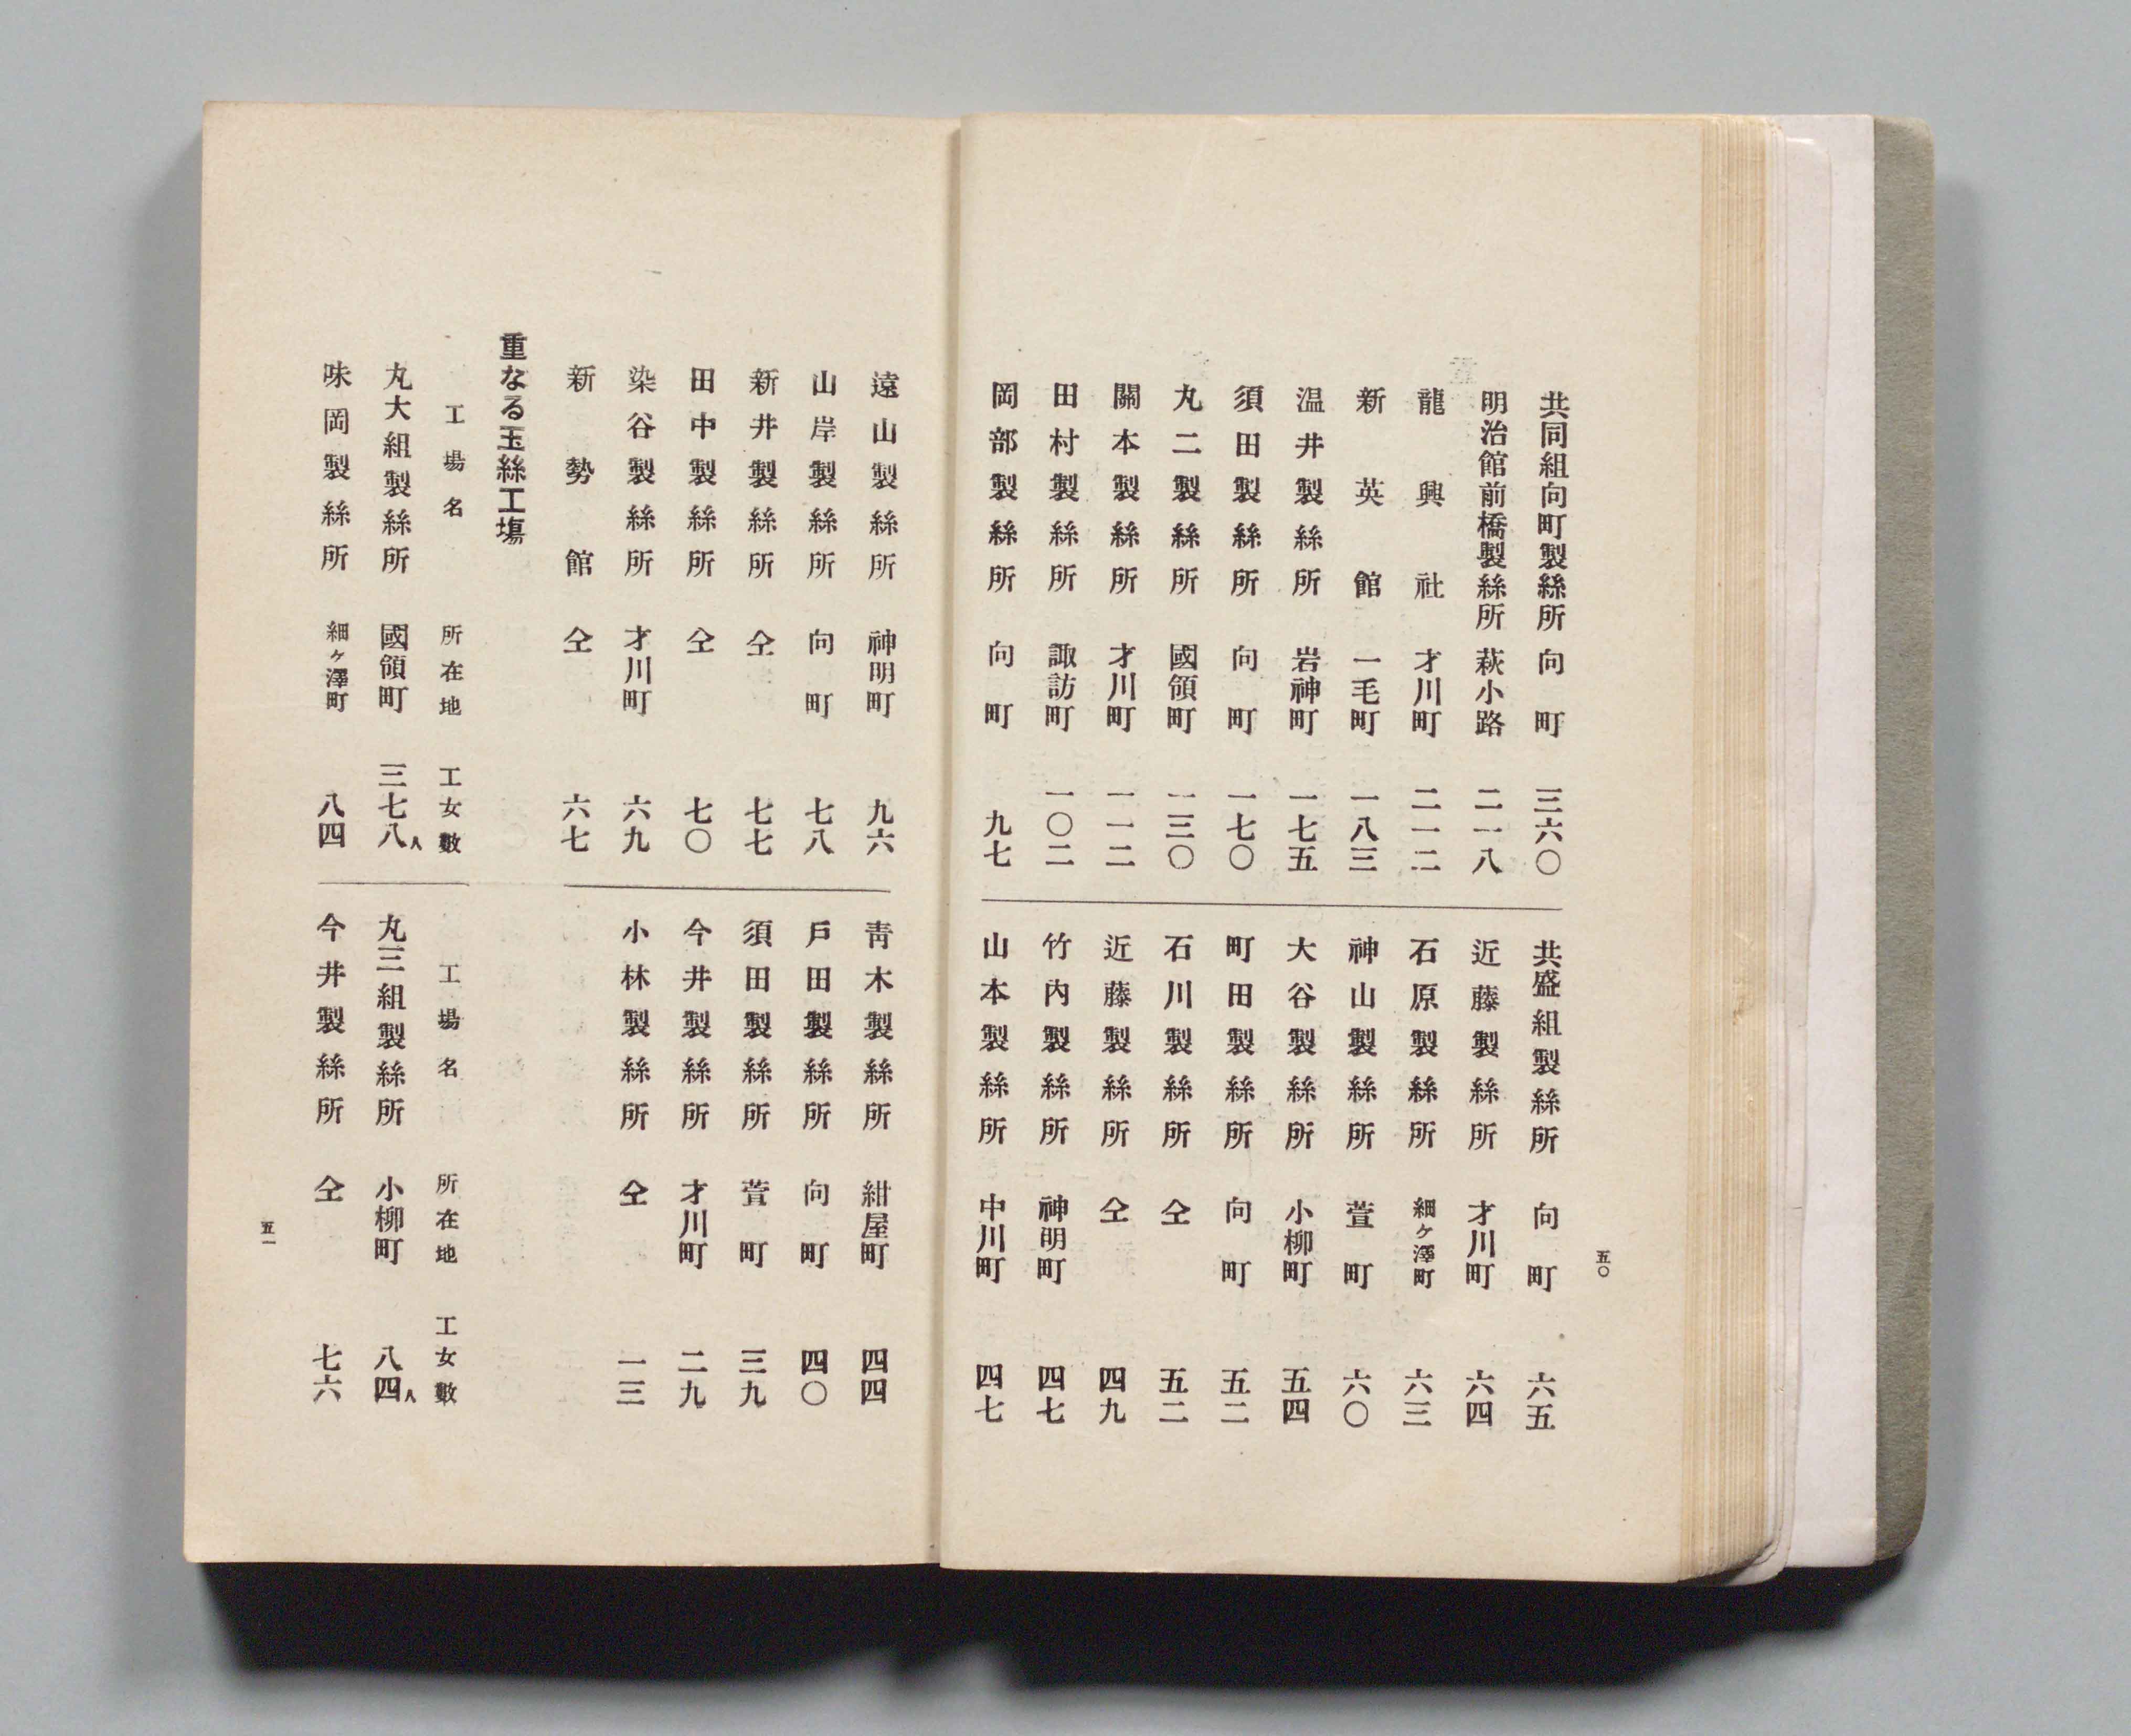 五〇
共同組向町製絲所 向町 三六〇
明治館前橋製絲所 萩小路 二一八
龍興社 才川町 二一二
新英館 一毛町 一八三
温井製絲所 岩神町 一七五
須田製絲所 向町 一七〇
丸二製絲所 國領町 一三〇
關本製絲所 才川町 一一二
田村製絲所 諏訪町 一〇二
岡部製絲所 向町 九七
共盛組製絲所 向町 六五
近藤製絲所 才川町 六四
石原製絲所 細ヶ澤町 六三
神山製絲所 萱町 六〇
大谷製絲所 小柳町 五四
町田製絲所 向町 五二
石川製絲所 仝 五二
近藤製絲所 仝 四九
竹内製絲所 神明町 四七
山本製絲所 中川町 四七
遠山製絲所 神明町 九六
山岸製絲所 向町 七八
新井製絲所 仝 七七
田中製絲所 仝 七〇
染谷製絲所 才川町 六九
新勢館 仝 六七
靑木製絲所 紺屋町 四四
戸田製絲所 向町 四〇
須田製絲所 萱町 三九
今井製絲所 才川町 二九
小林製絲所 仝 一三
重なる玉絲工塲
工場名 所在地 工女數
丸大組製絲所 國領町 三七八人
味岡製絲所 細ヶ澤町 八四
工場名 所在地 工女數
丸三組製絲所 小柳町 八四人
今井製絲所 仝 七六
五一